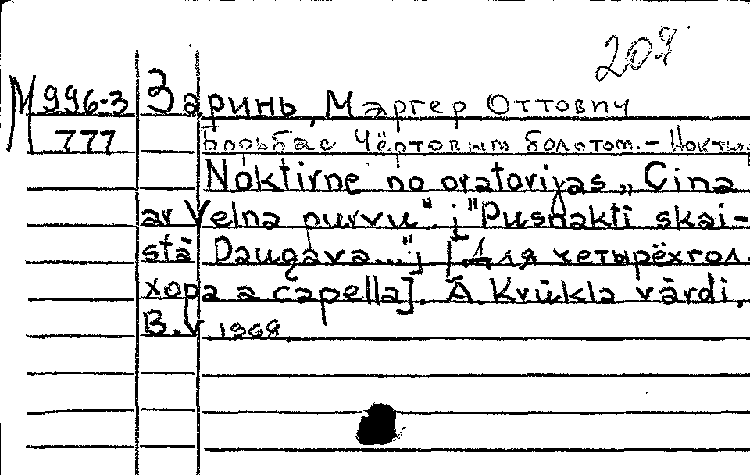 209
М 996-3 Заринь, Маргер Оттович
777 Борьба с Чёртовым болотом. - Ноктюр
Noktirne no oratorijas „Cina
ar Velna purvu"; "Pusnakti skai-
stā Daugava..."; [Для четырёхгол.
хора a capella]. Ā. Krūkla vārdi,
B.v. 1968